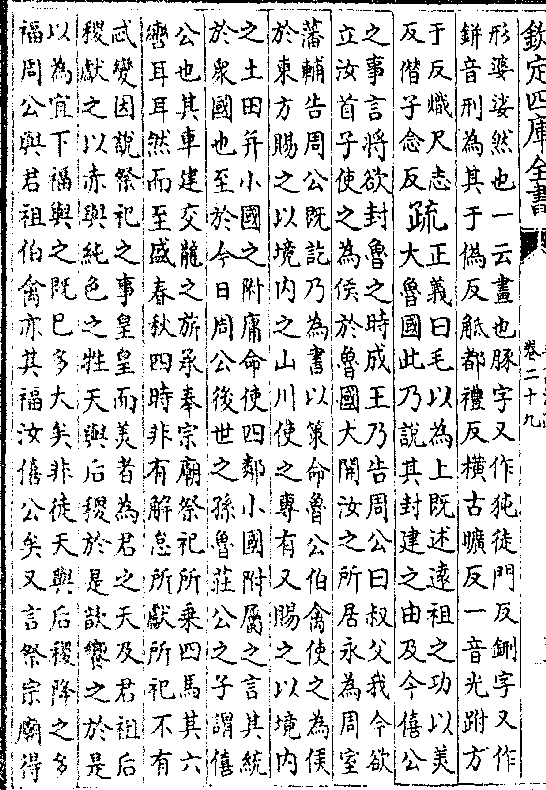 欽定四庫全書
卷二十九
形婆娑然也一云畫也豚字又作㹠徒門反鉶字又作
鈃音刑為其于偽反觝都禮反橫古曠反一音光跗方
于反熾尺志
反僭子念反
疏
正義曰毛以為上既述遠祖之功以美
大魯國此乃說其封建之由及今僖公
之事言將欲封魯之時成王乃告周公曰叔父我今欲
立汝首子使之為侯於魯國大開汝之所居永為周室
藩輔告周公既訖乃為書以策命魯公伯禽使之為侯
於東方賜之以境内之山川使之專有又賜之以境内
之土田并小國之附庸命使四鄰小國附屬之言其統
於衆國也至於今日周公後世之孫魯莊公之子謂僖
公也其車建交龍之旂承奉宗廟祭祀所乘四馬其六
轡耳耳然而至盛春秋四時非有解怠所獻所祀不有
忒變因說祭祀之事皇皇而美者為君之天及君祖后
稷獻之以赤與純色之牲天與后稷於是歆饗之於是
以為宜下福與之既已多大矣非徒天與后稷降之多
福周公與君祖伯禽亦其福汝僖公矣又言祭宗廟得